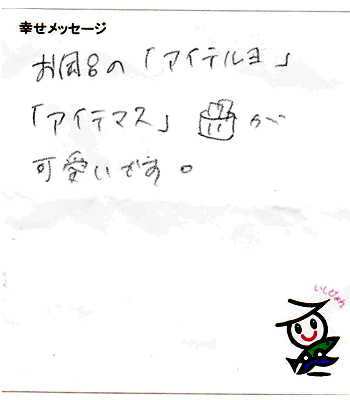 幸せメッセージ
お風呂の「アイテルヨ」
「アイテマス」が
可愛いです。
いしぴょん